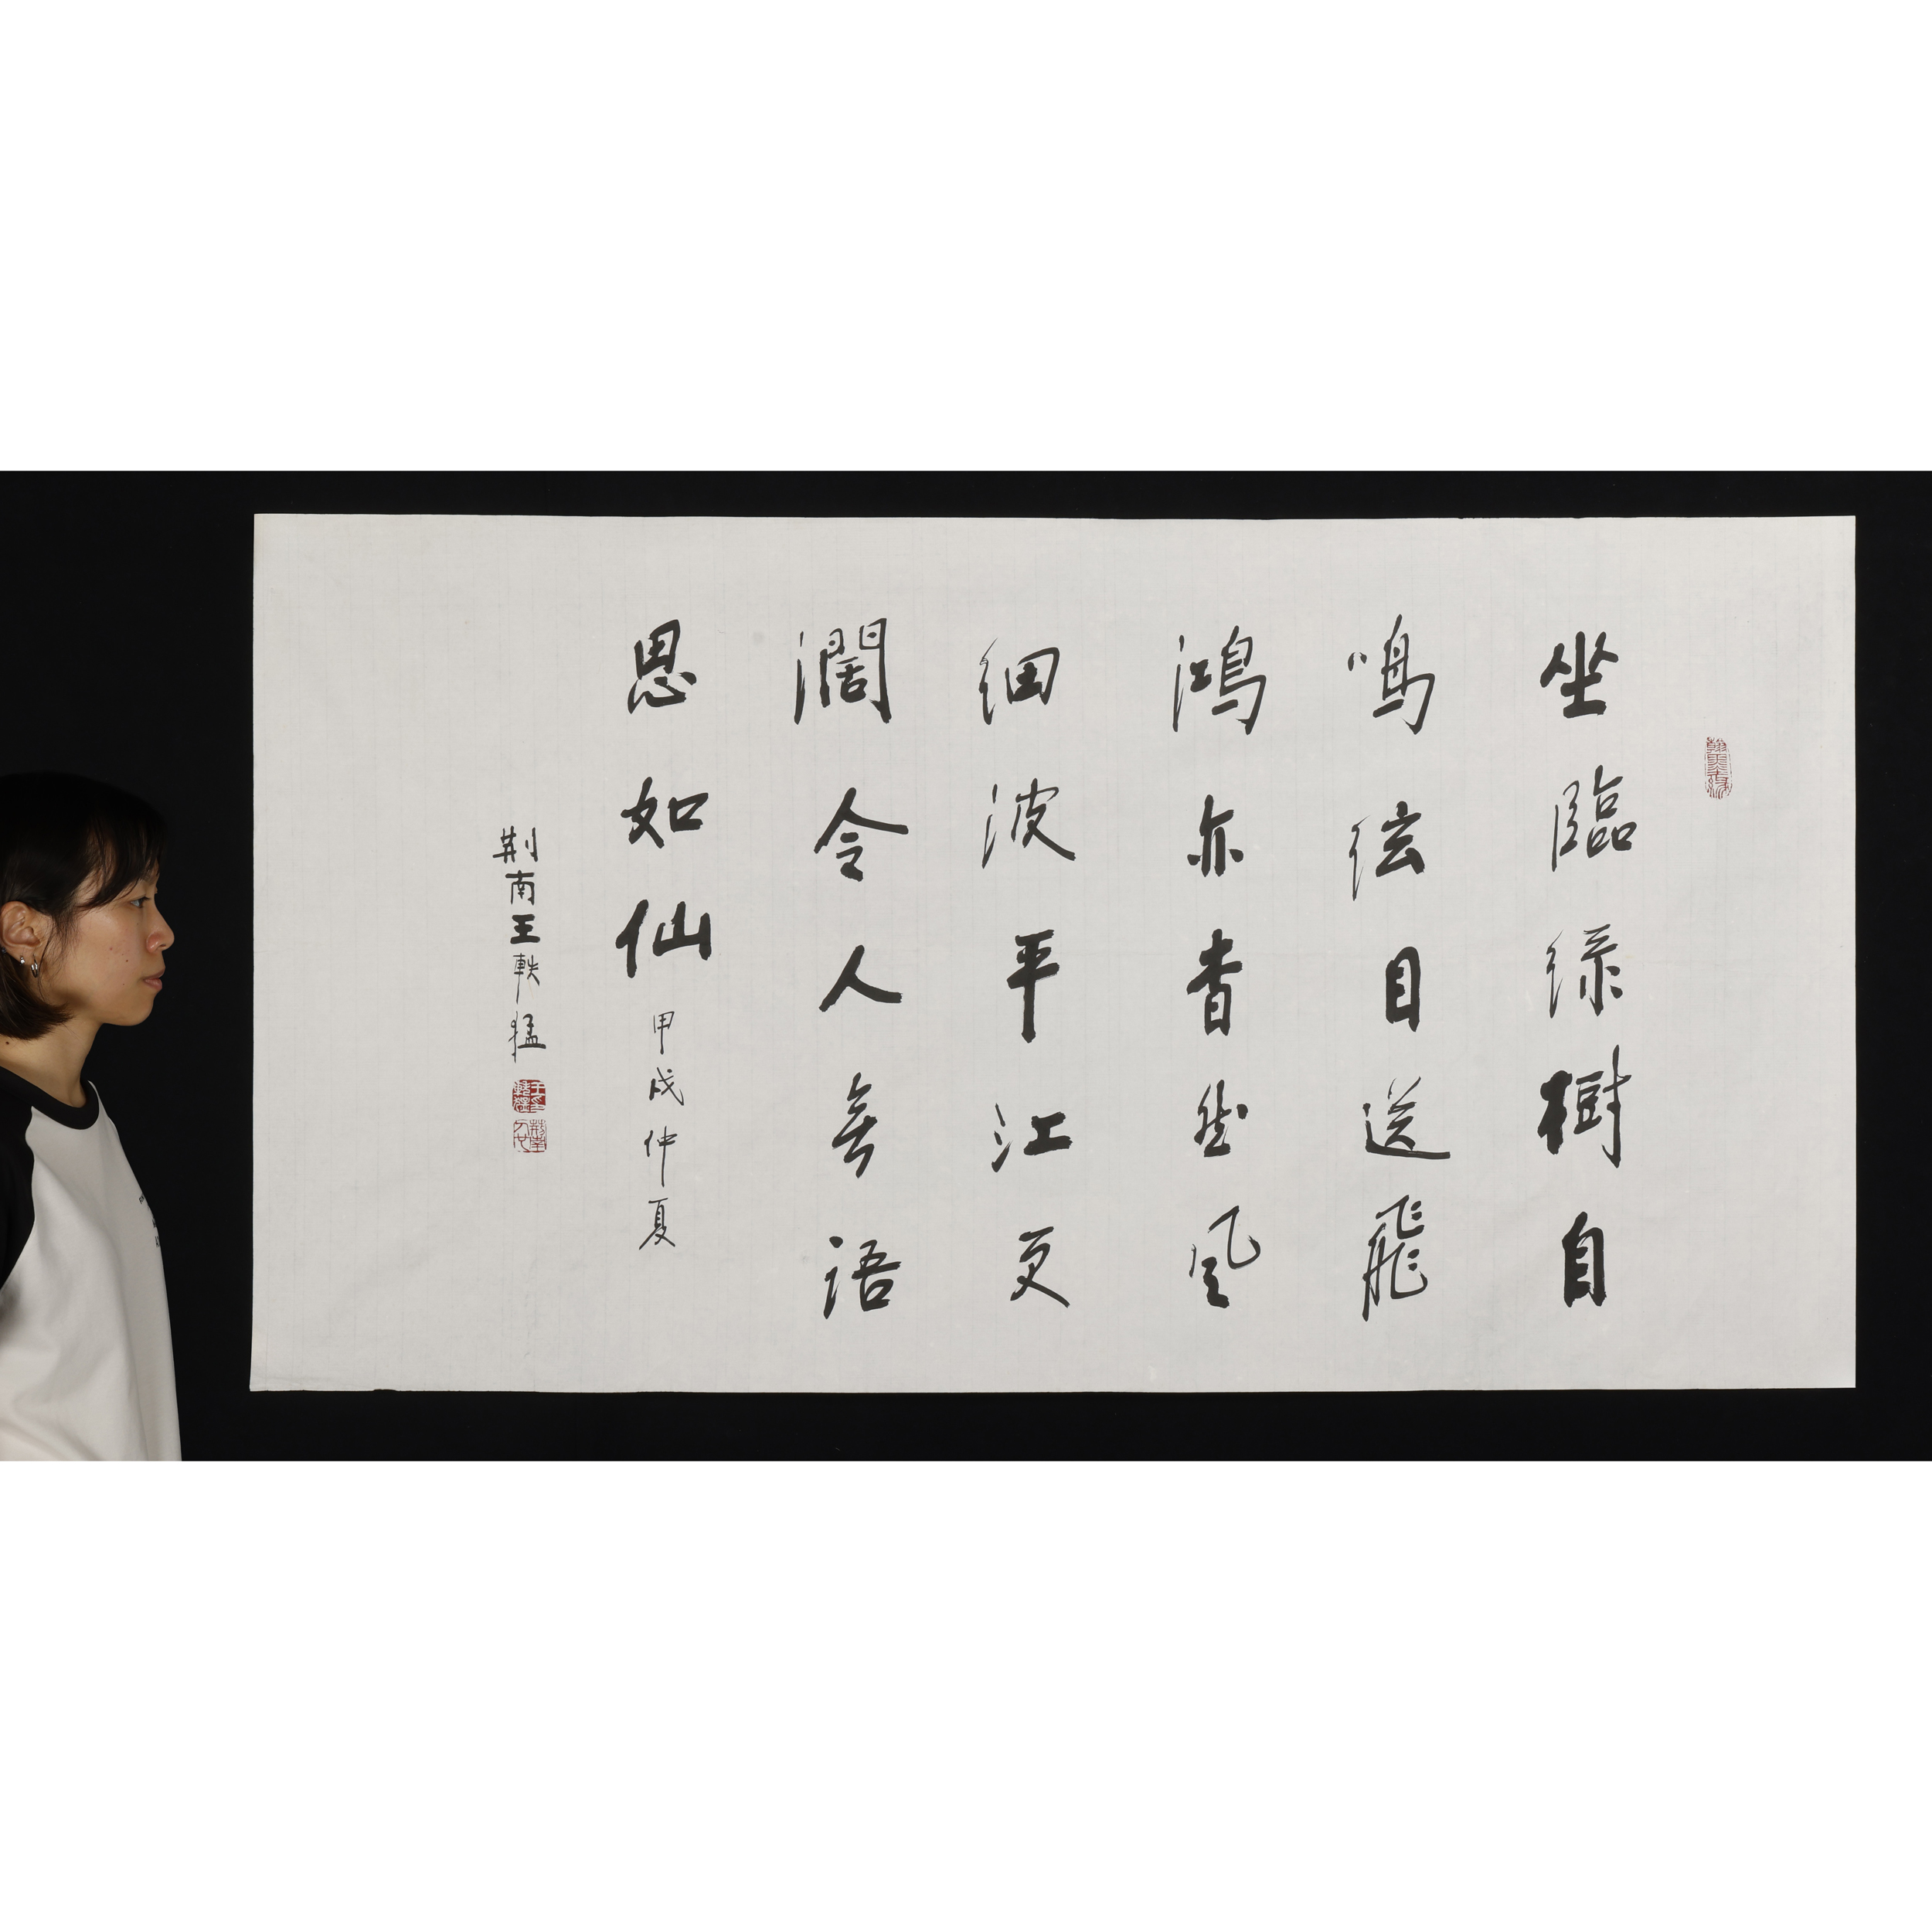 坐臨綠樹自
鳴絃目送飛
鴻亦杳然風
細波平江更
濶令人無語
思如仙 甲戌仲夏
荆南王軼猛